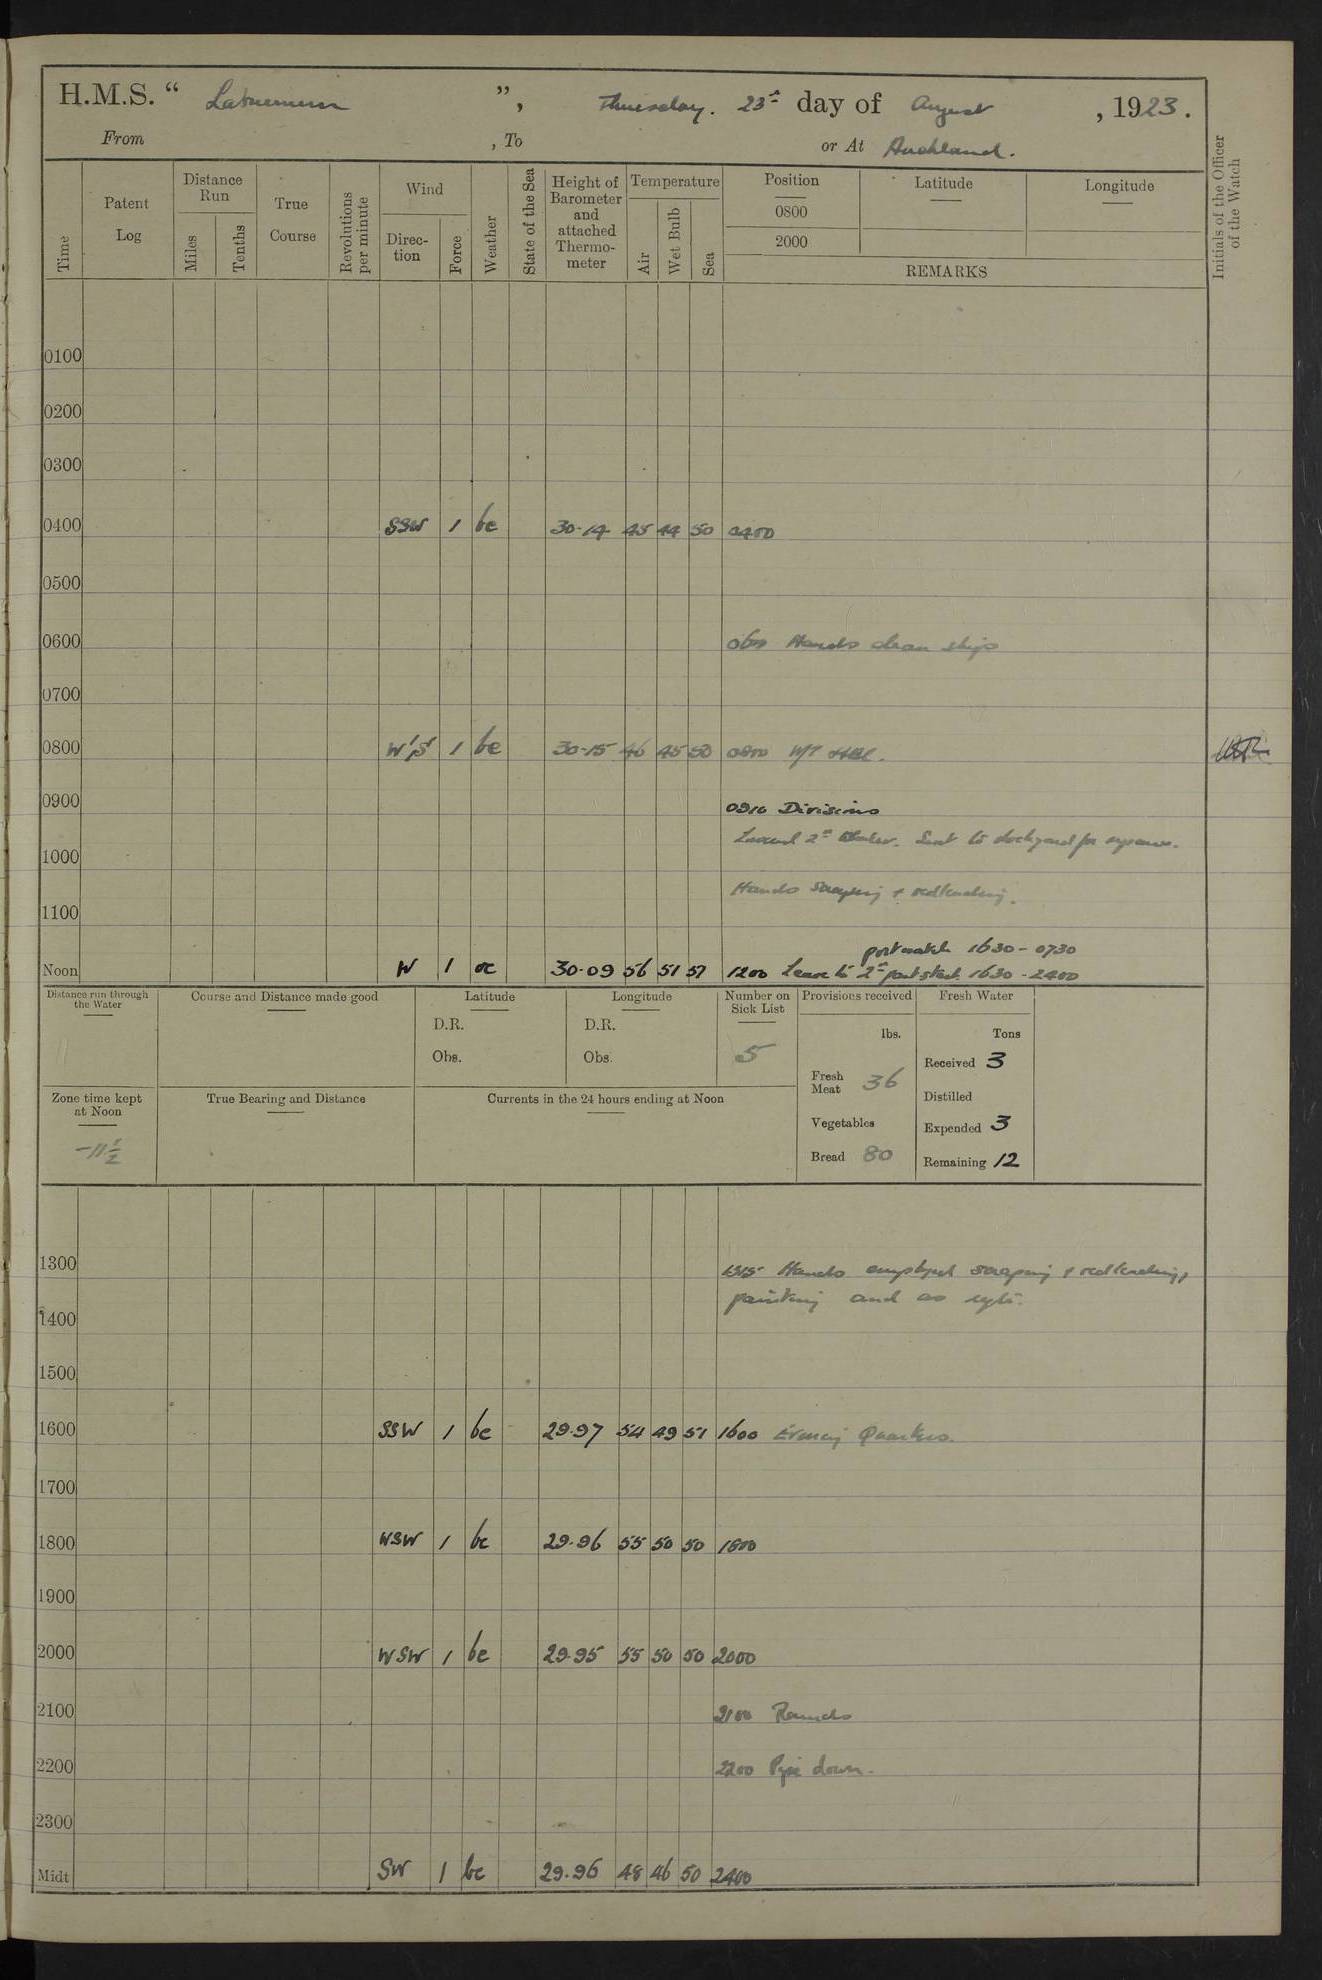 H.M.S. “ Laburnum ”, Thursday. 23rd day of August, 1923.
From , To or At Auckland.
Time
Patent Log
Distance Run
Miles
Tenths
True Course
Revolutions per minute
Wind
Direc-tion
Force
Weather
State of the Sea
Height of Barometer and attached Thermo-meter
Temperature
Air
Wet Bulb
Sea
Position
0800
2000
Latitude
Longitude
REMARKS
Initials of the Officer of the Watch
0100
0200
0300
0400 SSW 1 bc 30.14 45 44 50 0400
0500
0600 0600 Hands clean ship
0700
0800 W'S' 1 bc 30.15 46 45 50 0800 W/T
0900 0910 Divisions
Landed 2nd Sent to dockyard for
1000
Hands scraping & redleading.
1100
port watch 1630 - 0730
Noon W 1 oc 30.09 56 51 51 1200 Leave to 2nd part stbd. 1630 - 2400
Distance run through the Water
Course and Distance made good
Latitude
D.R.
Obs.
Longitude
D.R.
Obs.
Number on Sick List
5
Provisions received
lbs.
Fresh Meat 36
Vegetables
Bread 80
Fresh Water
Tons
Received 3
Distilled
Expended 3
Remaining 12
Zone time kept at Noon
-11½
True Bearing and Distance
Currents in the 24 hours ending at Noon
1300 1315 Hands employed scraping & redleading,
painting and as reqte.
1400
1500
1600 SSW 1 bc 29.97 54 49 51 1600 Evening Quarters.
1700
1800 WSW 1 bc 29.96 55 50 50 1800
1900
2000 WSW 1 bc 29.95 55 50 50 2000
2100 2100 Rounds
2200 2200 Pipe down.
2300
Midt SW 1 bc 29.96 48 46 50 2400